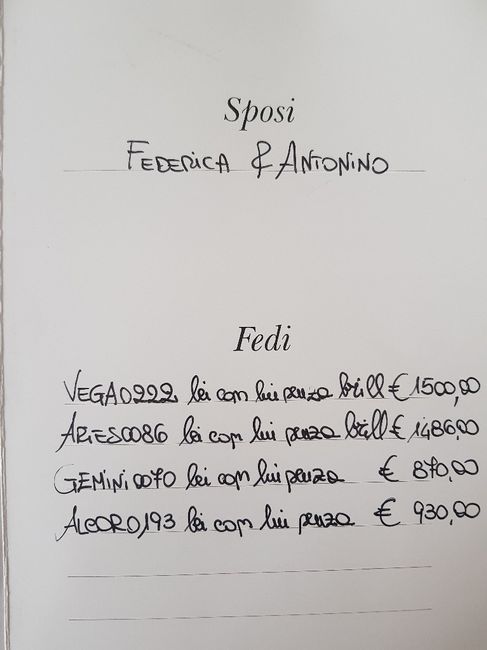 Sposi
FEDERICA & ANTONINO
Fedi
VEGA0222 lei con lui senza brill € 1500,00
ARIES0086 lei con lui senza brill € 1486,00
GEMINI0070 lei con lui senza € 870,00
ALCOR0193 lei con lui senza € 930,00